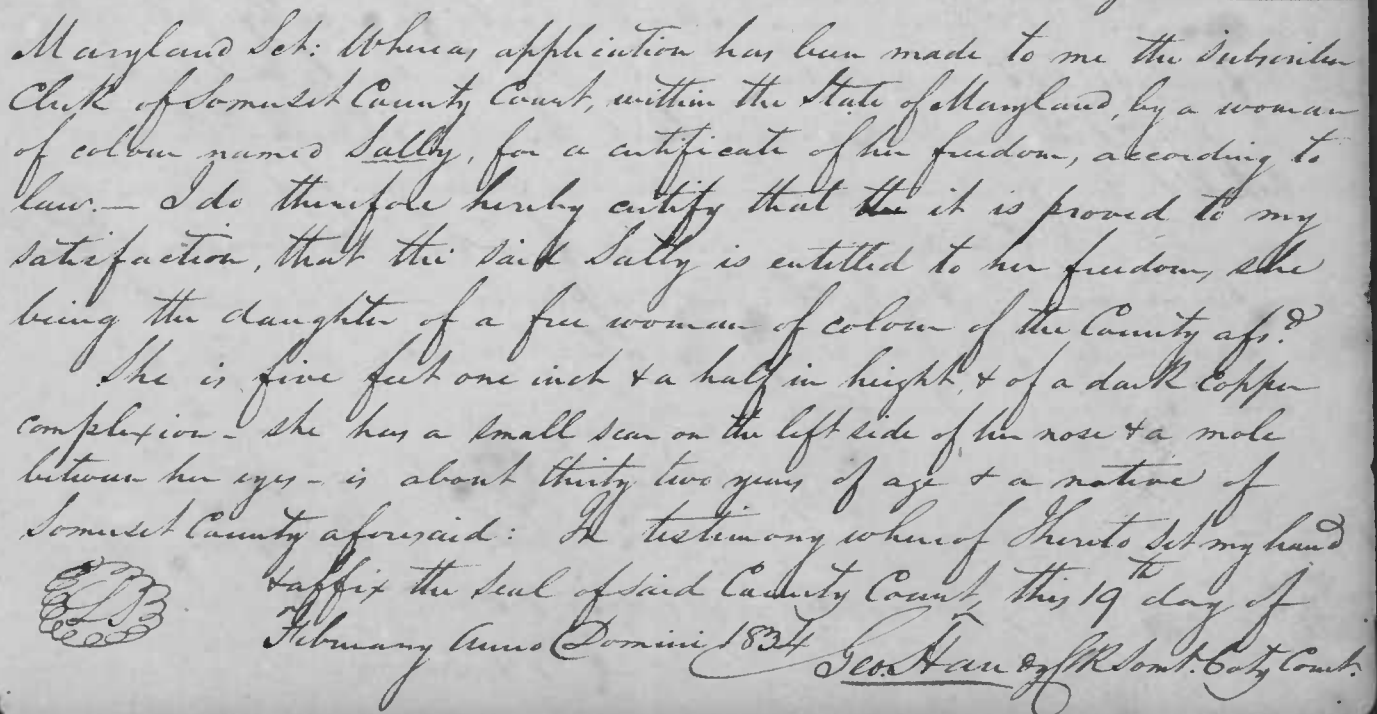 Maryland Sct: Whereas application has been made to me the subscriber
Clerk of Somerset County Court, within the State of Maryland, by a woman
of colour named Sally, for a certificate of her freedom, according to
law.— I do therefore hereby certify that the it is proved to my
satisfaction, that the said Sally is entitled to her freedom, she
being the daughter of a free woman of colour of the County afsd.
She is five feet one inch & a half in height, & of a dark copper
complexion - she has a small scar on the left side of her nose & a mole
between her eyes - is about thirty two years of age & a native of
Somerset County aforesaid: In testimony whereof I hereto set my hand
& affix the seal of said County Court, this 19th day of
February Anno Domini 1834
Geo. Handy Clk Somt. Coty Court.